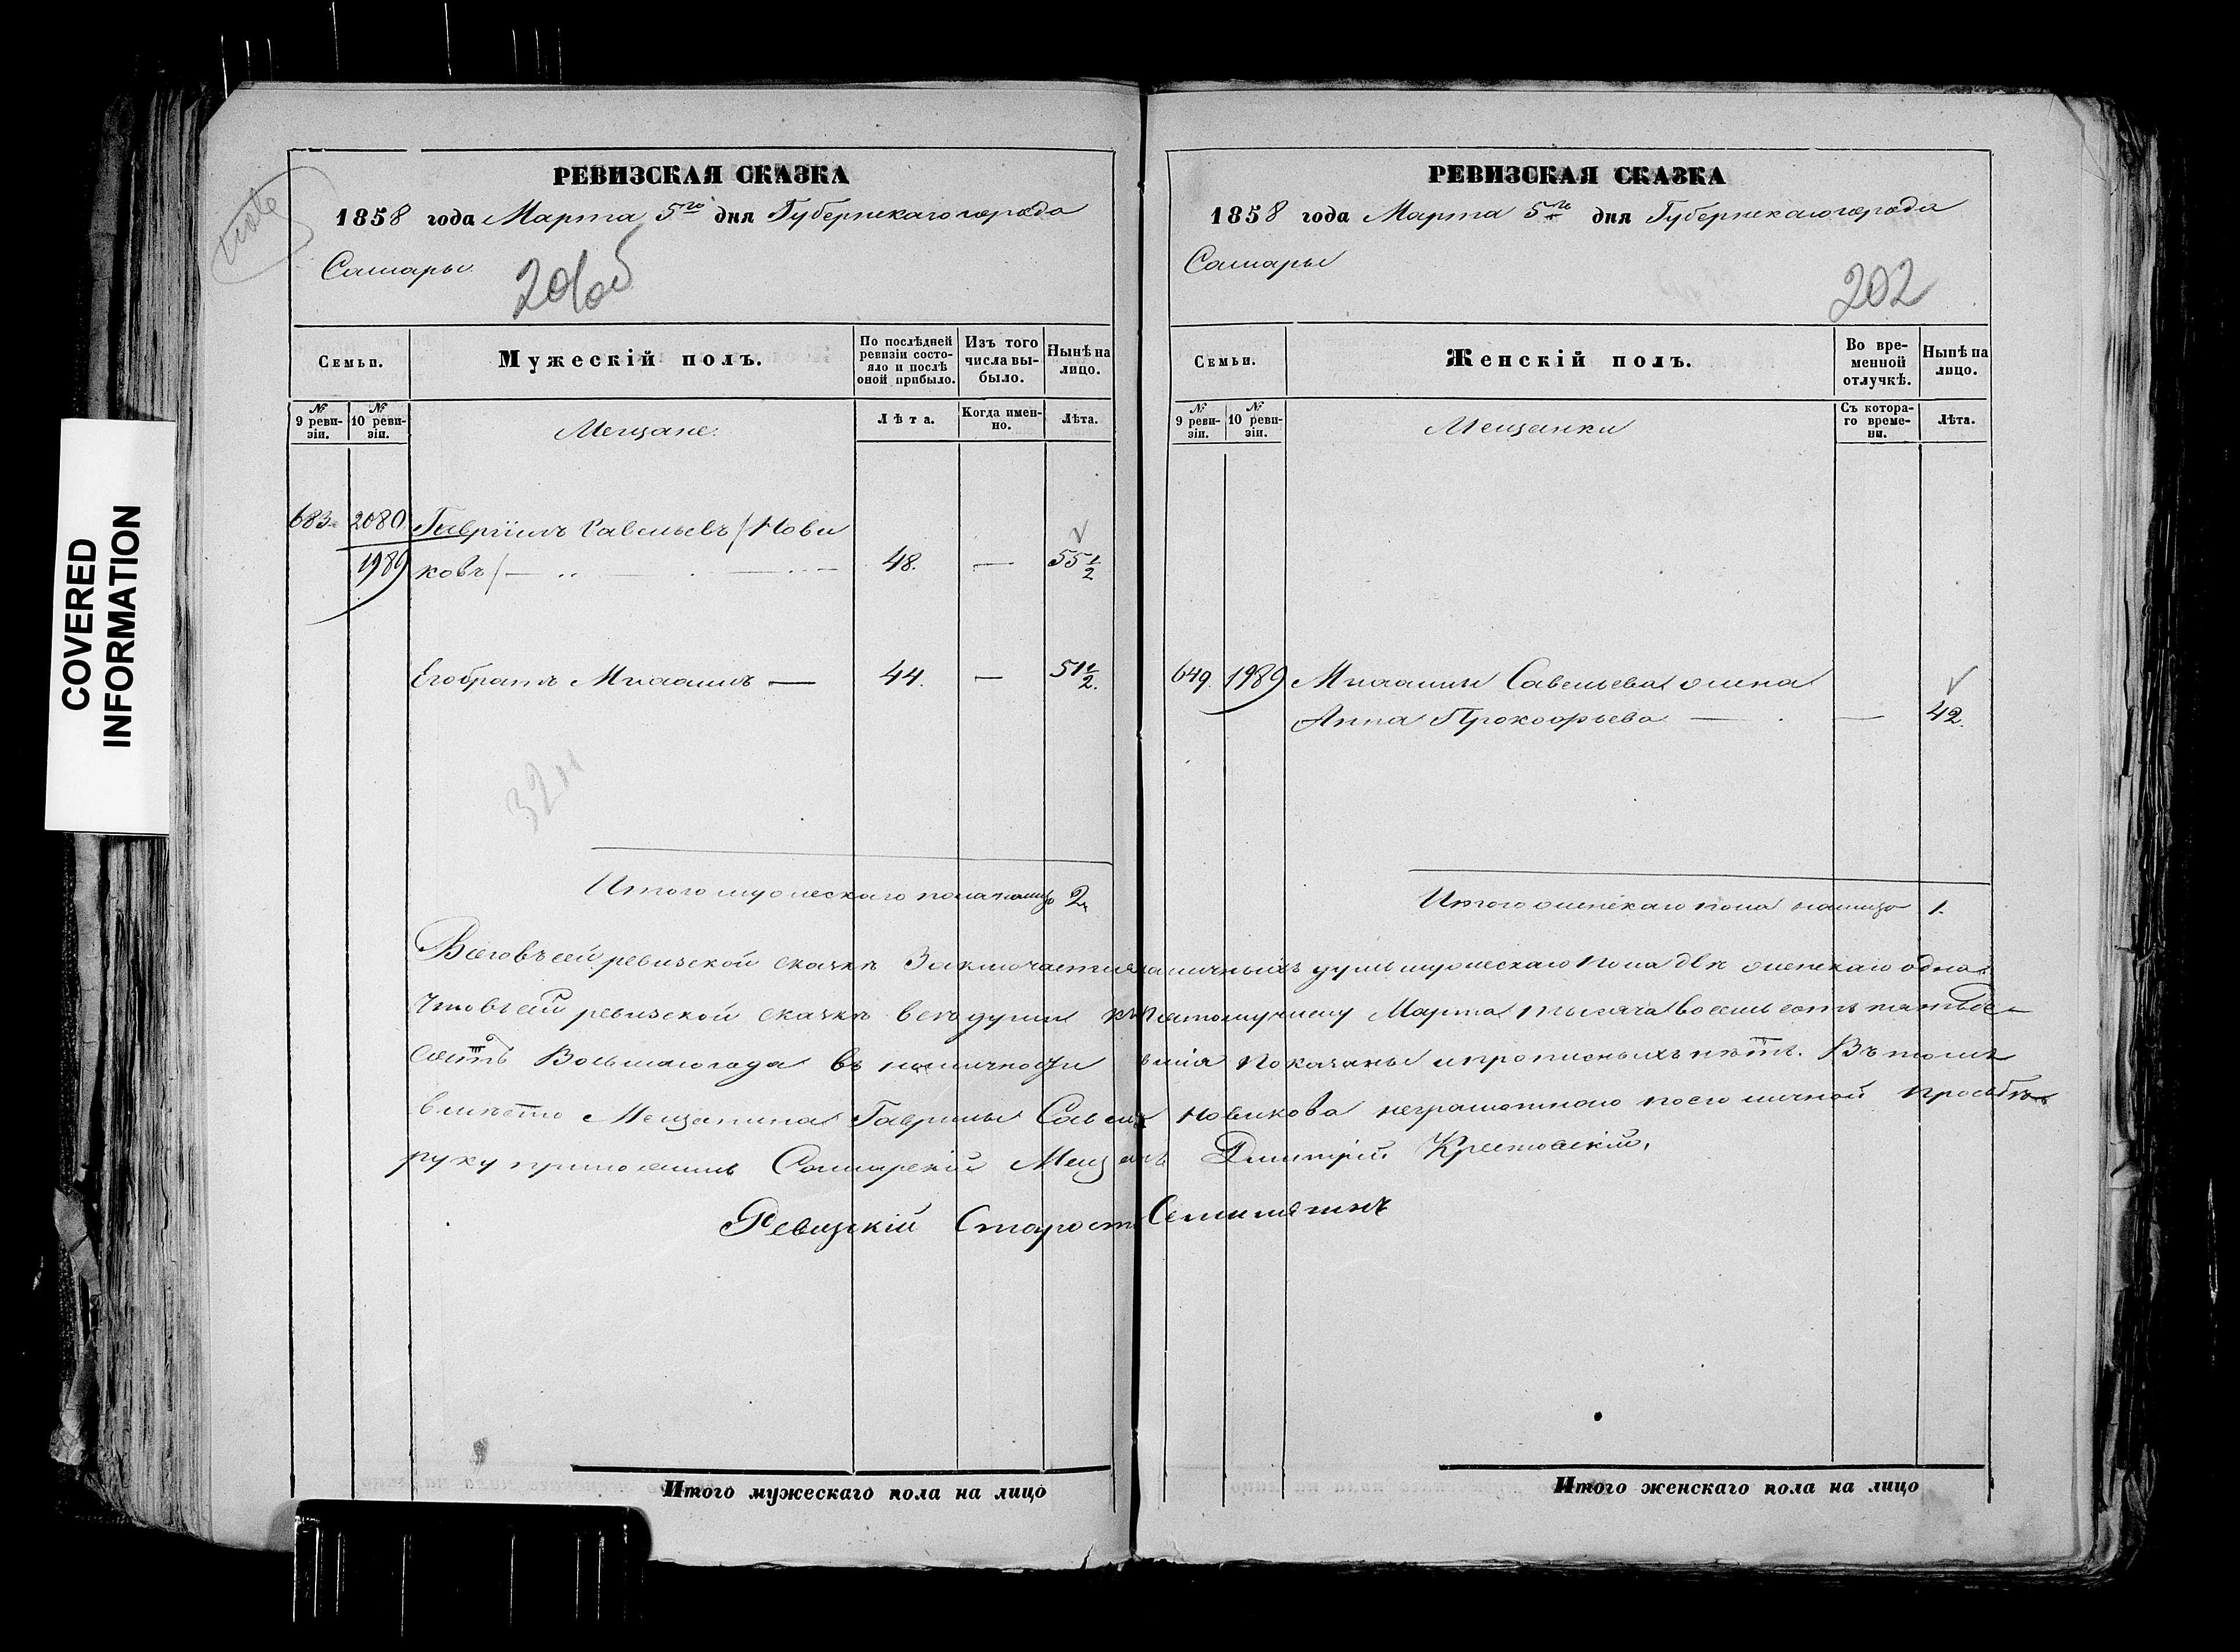 COVERED
INFORMATION
РЕВИЗСКАЯ СКАЗКА
1858 года Марта 5го дня Губернскаго города
Самары
201об
Семьи.
Мужескій полъ.
По послѣдней ревизіи состояло и послѣ оной прибыло.
Изъ того числа выбыло.
Нынѣ на лицо.
№ 9 ревизіи.
№ 10 ревизіи.
Мещане.
Лѣта.
Когда именно.
Лѣта.
683 2080 Гавріилъ Савельевъ /Нови
1989 ковъ/ — 48. — 55 1/2
Его братъ Михаилъ — 44. — 51 1/2.
Итого мужескаго пола налицо 2.
РЕВИЗСКАЯ СКАЗКА
1858 года Марта 5го дня Губернскаго города
Самары
202
Семьи.
Женскій полъ.
Во временной отлучкѣ.
Нынѣ на лицо.
№ 9 ревизіи.
№ 10 ревизіи.
Мещанки
Съ котораго времени.
Лѣта.
649. 1989 Михаилы Савельева жена
Анна Прокофьева — — 42.
Итого женскаго пола налицо 1.
Всего въ сей ревизской сказкѣ Заключается наличныхъ душъ мужескаго пола двѣ женскаго одна
Что въ сей ревизской сказкѣ всѣ души къ Пятому числу Марта тысяча восемь сотъ пятьде
сятъ Восьмаго года въ наличности показаны и прописныхъ нѣтъ. Въ томъ
вмѣсто Мещанина Гаврилы Новикова неграмотнаго по его личной прозьбѣ
руку приложилъ Самарскій Дмитрій
Ревизскій Староста
Итого мужескаго пола на лицо
Итого женскаго пола на лицо